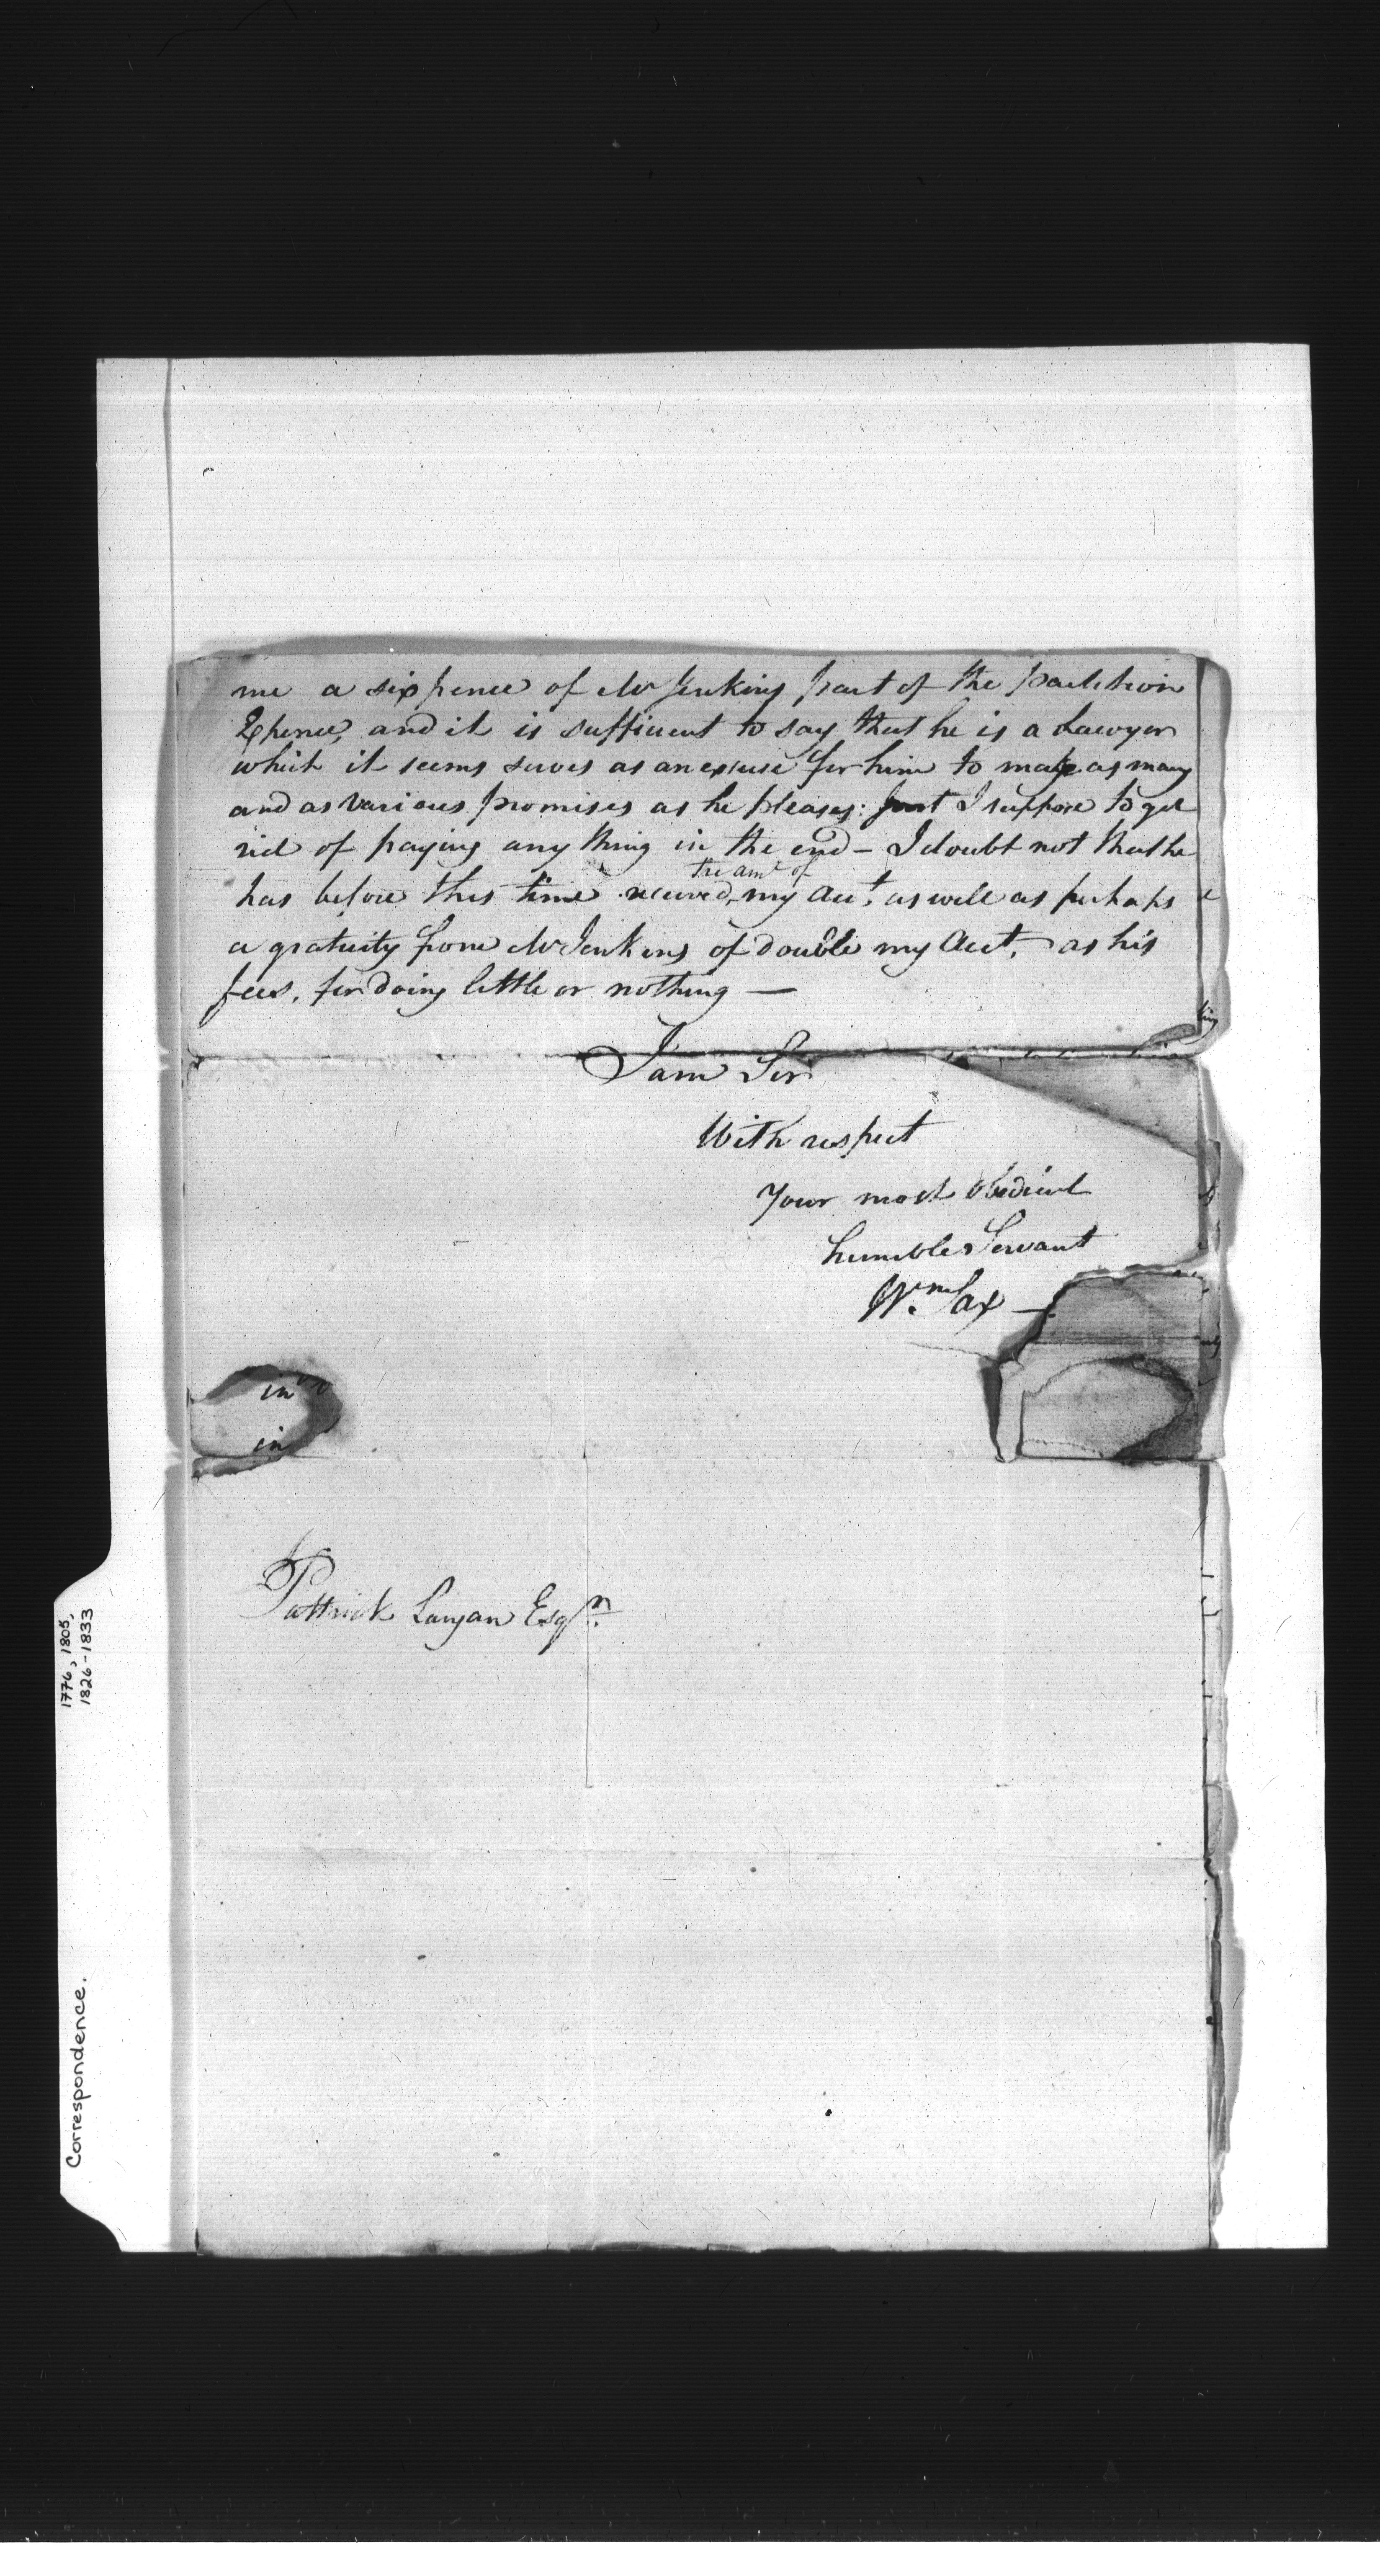 me a sixpence of Mr Jenkins part of the partition
and it is sufficient to say that he is a Lawyer
which it seems serves as an excuse for him to make as many
and as various promises as he pleases: I suppose to get
rid of paying any thing in the end – I doubt not that he
the amt of
has before this time received my Acct. as well as perhaps
a gratuity from Mr Jenkins of double my Acct. as his
fees, for doing little or nothing —
I am Sir
With respect
Your most obedient
humble Servant
Wm. Sax —
in
in
Pattrick Langan Esqr.
1776, 1805,
1826-1833
Correspondence.